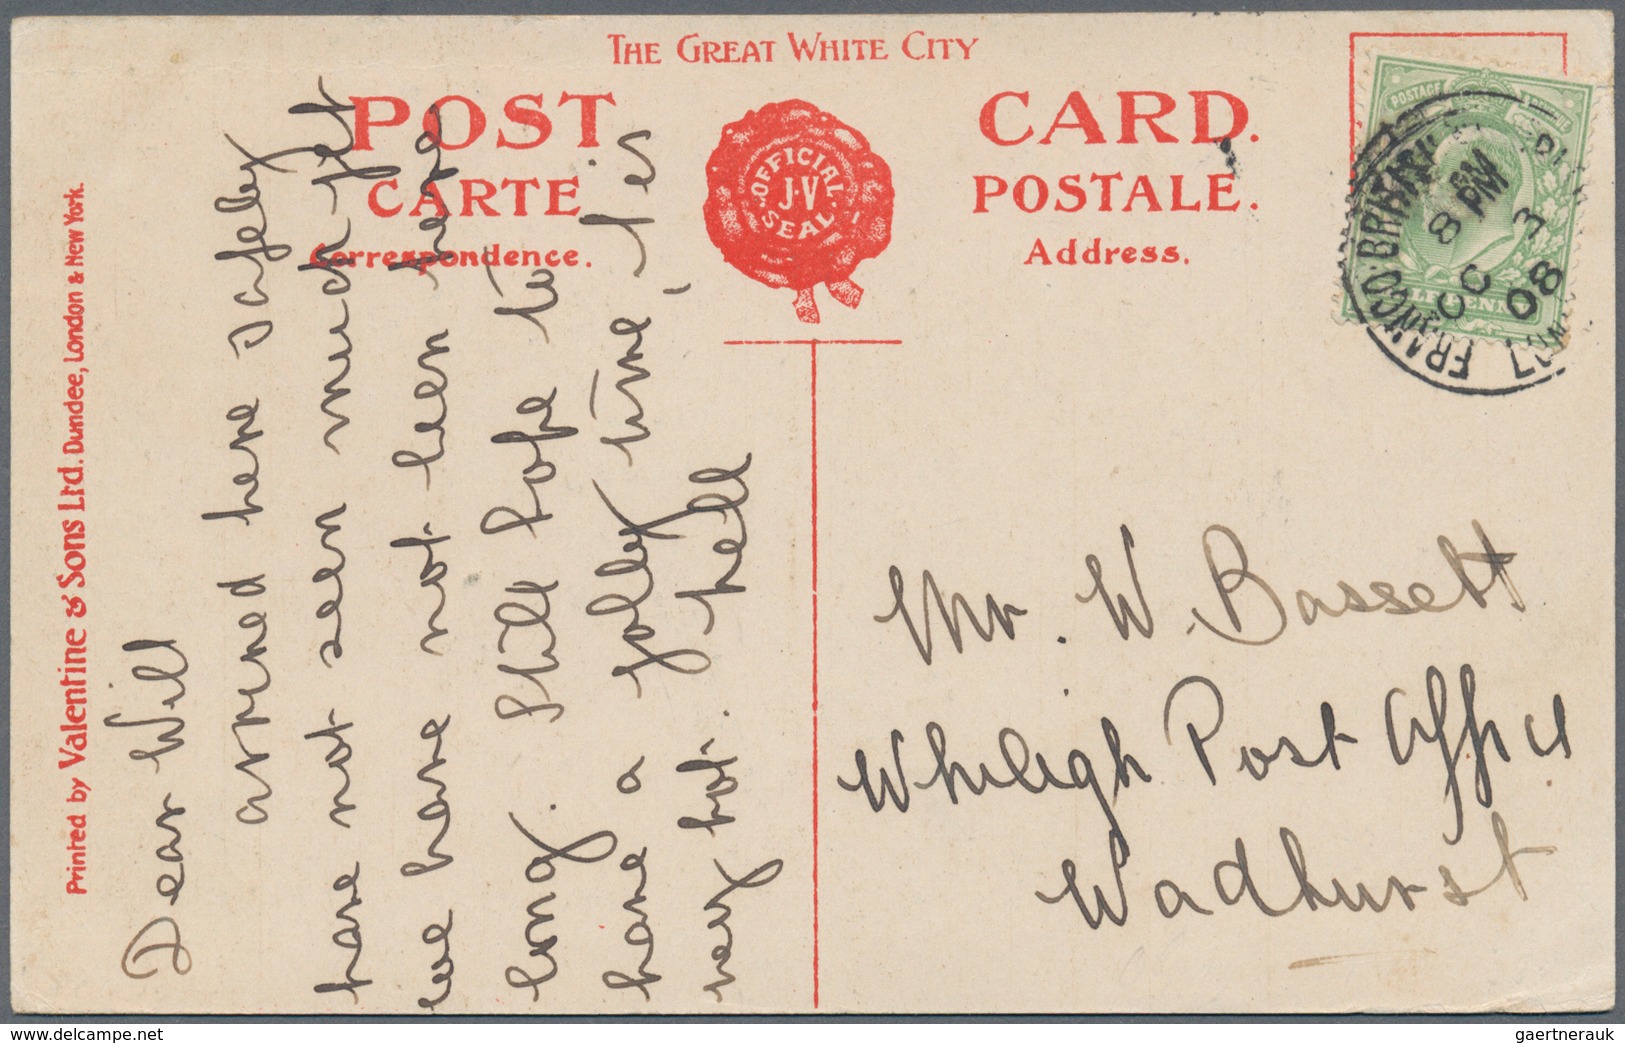 THE GREAT WHITE CITY
POST CARD.
CARTE POSTALE.
Correspondence. Address.
OFFICIAL
J·V
SEAL
Printed by Valentine & Sons Ltd. Dundee, London & New York.
Dear Will
arrived here safely
have not seen much yet
we have not been here
long. Still hope to
have a jolly time, its
very hot.
POSTAGE
FRANCO. BRITISH
8 PM
OC 3
08
Mr. W. Bassett
Whiligh Post Office
Wadhurst
gaertnerauk @ delcampe.net